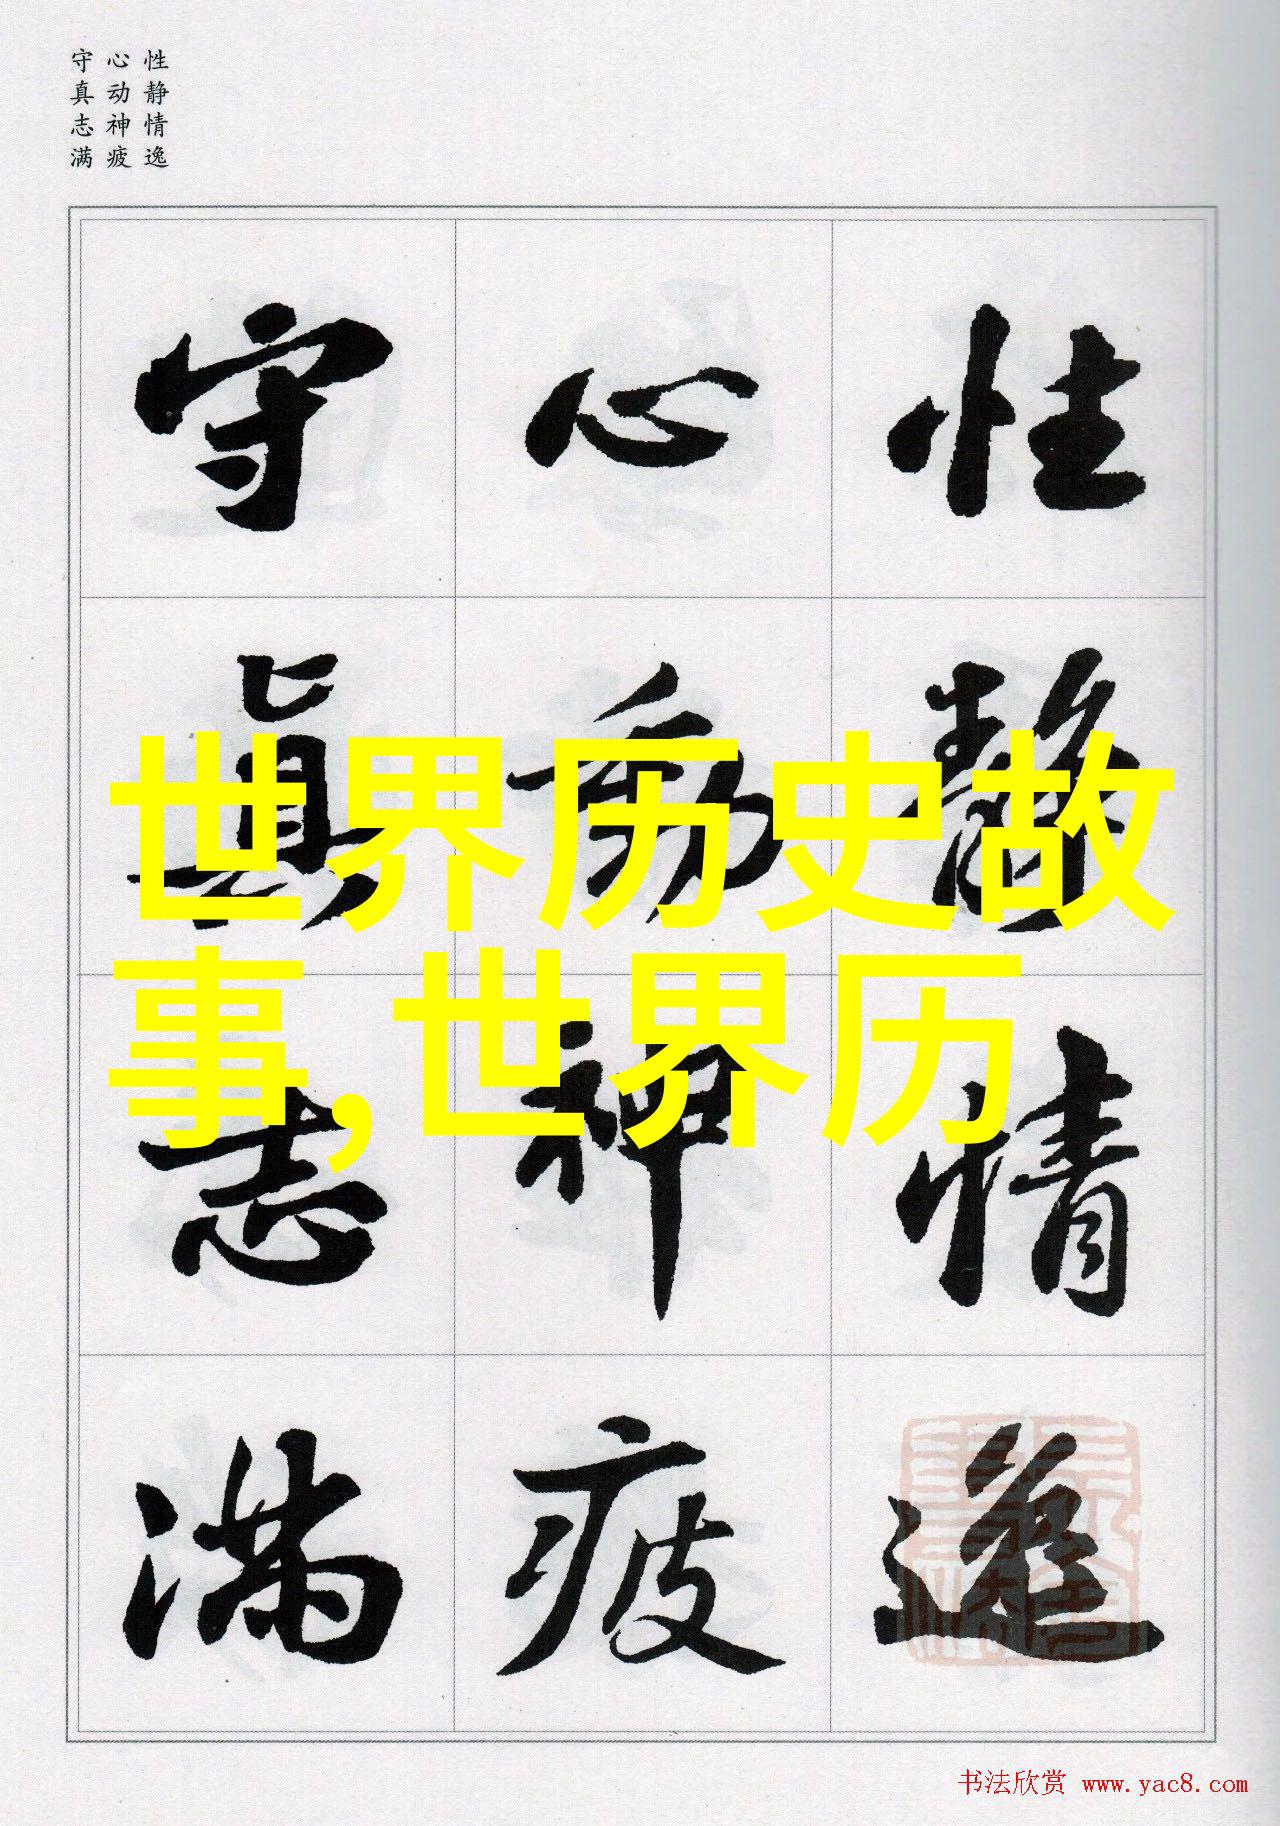 性静情逸
心动神疲
守真志满
性静情逸
心動神疲
守真志满
世界历史故
事,世界历
书法欣赏 www.yac8.com